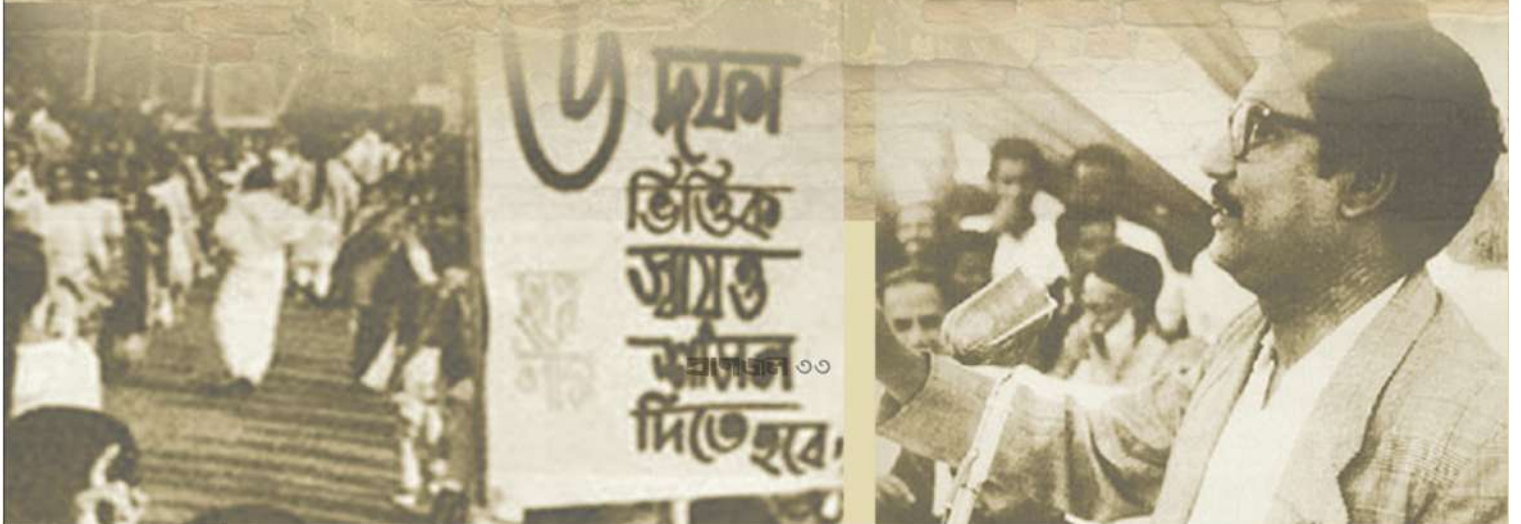 ৬ দফা
ভিত্তিক
স্বায়ত্ত
শাসন
দিতে হবে
৩৩